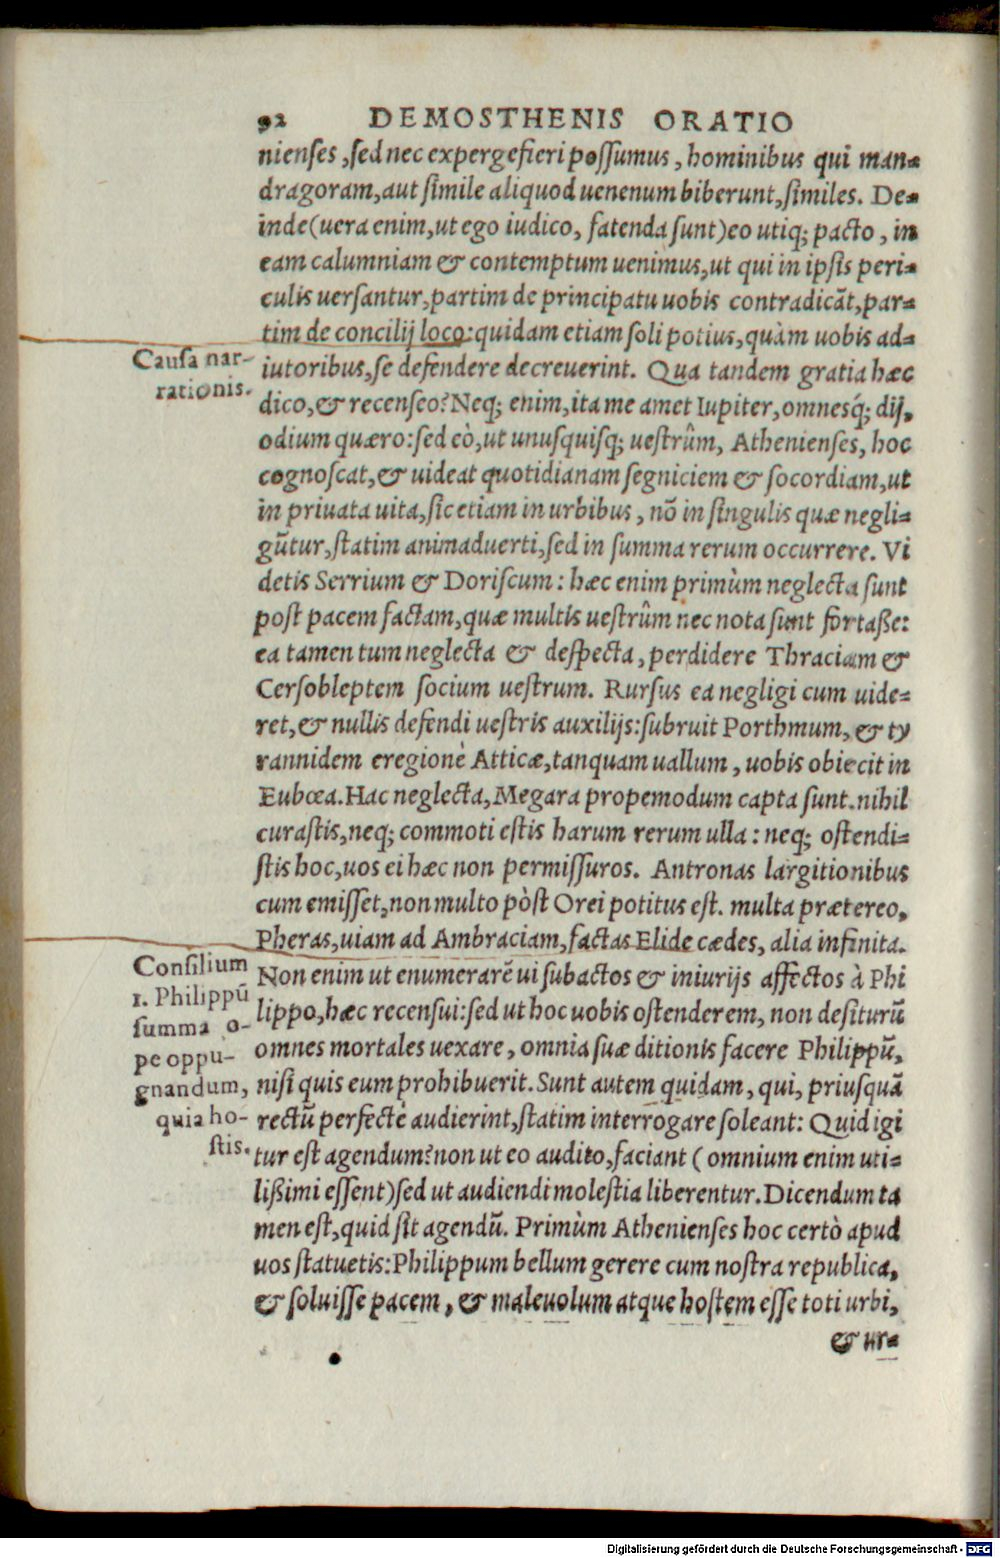 92 DEMOSTHENIS ORATIO
nienses, sed nec expergefieri possumus, hominibus qui man-
dragoram, aut simile aliquod uenenum biberunt, similes. De-
inde (uera enim, ut ego iudico, fatenda sunt) eo utiq; pacto, in
eam calumniam & contemptum uenimus, ut qui in ipsis peri-
culis uersantur, partim de principatu uobis contradicãt, par-
tim de concilij loco: quidam etiam soli potius, quàm uobis ad-
Causa nar-
rationis.
iutoribus, se defendere decreuerint. Qua tandem gratia hæc
dico, & recenseo? Neq; enim, ita me amet Iupiter, omnesq́; dij,
odium quæro: sed eò, ut unusquisq; uestrûm, Athenienses, hoc
cognoscat, & uideat quotidianam segniciem & socordiam, ut
in priuata uita, sic etiam in urbibus, nõ in singulis quæ negli-
gũtur, statim animaduerti, sed in summa rerum occurrere. Vi
detis Serrium & Doriscum: hæc enim primùm neglecta sunt
post pacem factam, quæ multis uestrûm nec nota sunt fortaße:
ea tamen tum neglecta & despecta, perdidere Thraciam &
Cersobleptem socium uestrum. Rursus ea negligi cum uide-
ret, & nullis defendi uestris auxilijs: subruit Porthmum, & ty
rannidem eregionè Atticæ, tanquam uallum, uobis obiecit in
Eubœa. Hac neglecta, Megara propemodum capta sunt. nihil
curastis, neq; commoti estis harum rerum ulla: neq; ostendi-
stis hoc, uos ei hæc non permissuros. Antronas largitionibus
cum emisset, non multo pòst Orei potitus est. multa prætereo,
Pheras, uiam ad Ambraciam, factas Elide cædes, alia infinita.
Consilium
1. Philippũ
summa o-
pe oppu-
gnandum,
quia ho-
stis.
Non enim ut enumerarẽ ui subactos & iniurijs affectos à Phi
lippo, hæc recensui: sed ut hoc uobis ostenderem, non desiturũ
omnes mortales uexare, omnia suæ ditionis facere Philippũ,
nisi quis eum prohibuerit. Sunt autem quidam, qui, priusquã
rectũ perfectè audierint, statim interrogare soleant: Quid igi
tur est agendum? non ut eo audito, faciant (omnium enim uti-
lißimi essent) sed ut audiendi molestia liberentur. Dicendum ta
men est, quid sit agendũ. Primùm Athenienses hoc certò apud
uos statuetis: Philippum bellum gerere cum nostra republica,
& soluisse pacem, & maleuolum atque hostem esse toti urbi,
& ur-
Digitalisierung gefördert durch die Deutsche Forschungsgemeinschaft - DFG